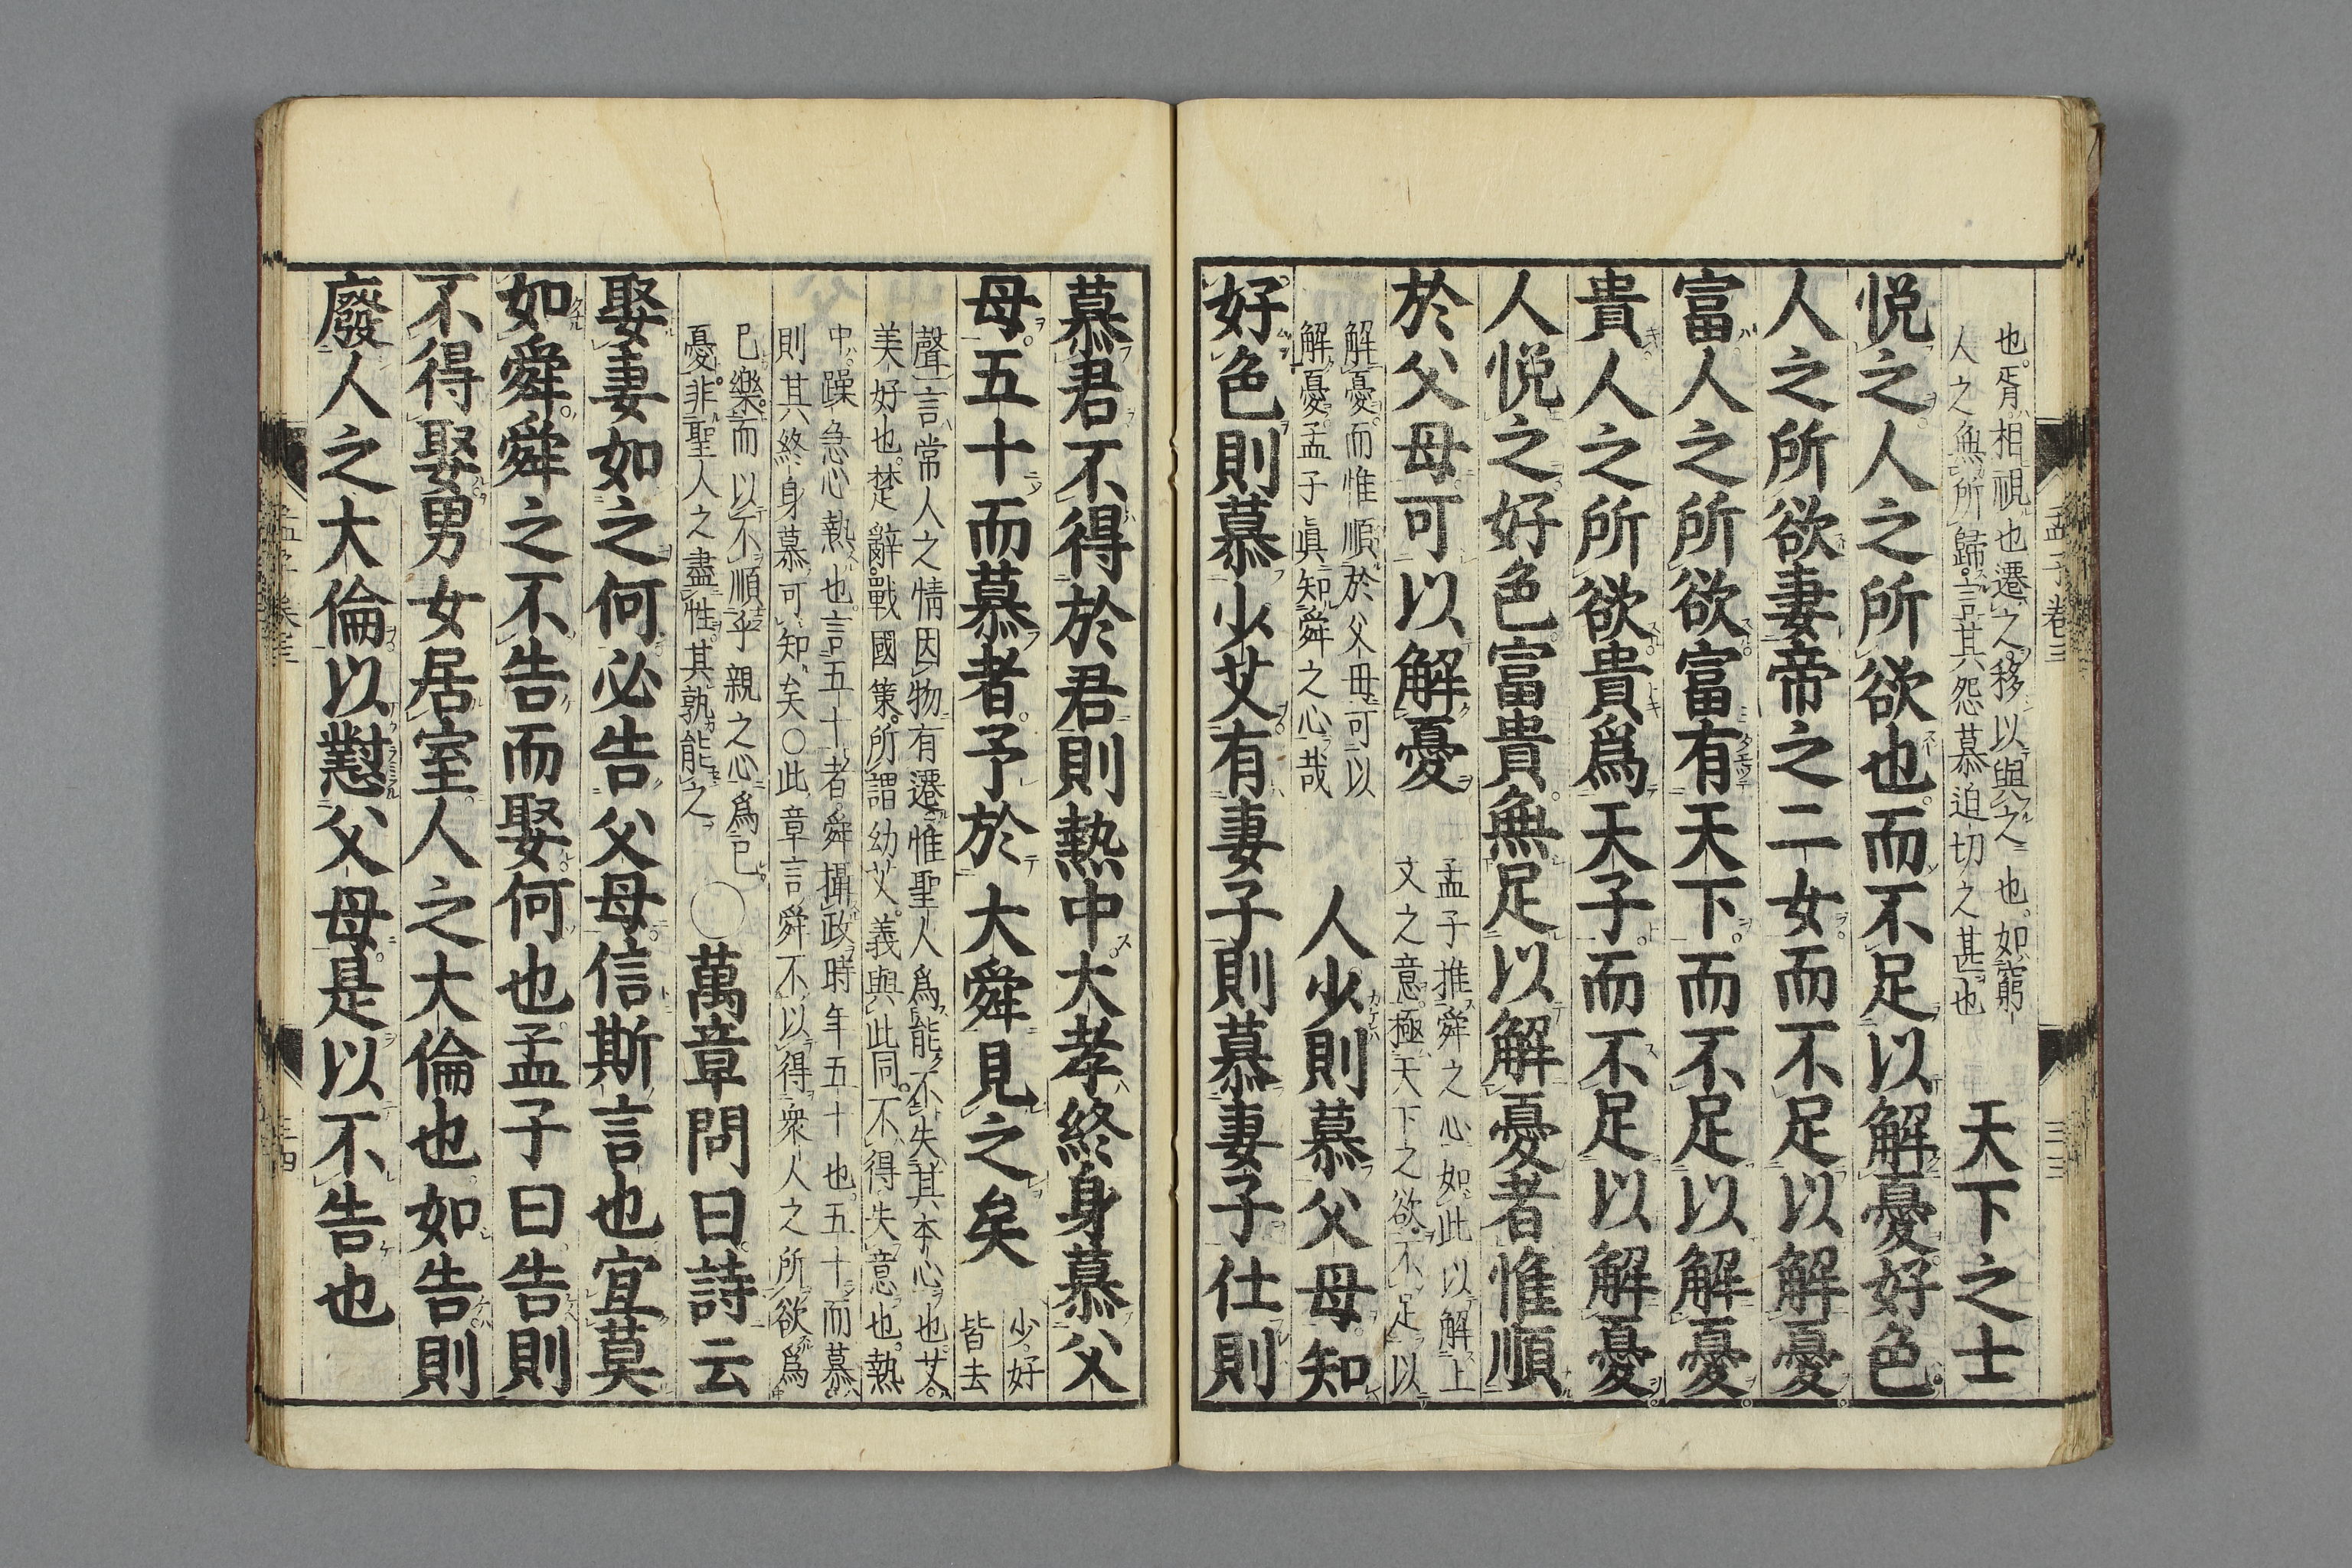 孟子卷三
三三
也。胥相視也。遷之移以與之也。如窮
人之無所歸。言其怨慕迫切之甚也
天下之士
悦之人之所欲也。而不足以解憂。好色
人之所欲。妻帝之二女。而不足以解憂。
富人之所欲。富有天下。而不足以解憂。
貴人之所欲。貴爲天子。而不足以解憂。
人悦之好色富貴。無足以解憂者。惟順
於父母。可以解憂
孟子推舜之心如此以解上
文之意。極天下之欲。不足以
解憂。而惟順於父母可以
解憂。孟子眞知舜之心哉
人少則慕父母。知
好色則慕少艾。有妻子則慕妻子。仕則
慕君不得於君則熱中。大孝終身慕父
母。五十而慕者。予於大舜見之矣
少。好
皆去
聲言常人之情因物有遷。惟聖人爲能不失其本心也。艾。
美好也。楚辭。戰國策。所謂幼艾。義與此同。不得失意也。熱
中。躁急心熱也。言五十者。舜攝政時年五十也。五十而慕。
則其終身慕可知矣〇此章言舜不以得衆人之所欲爲
已樂。而以不順乎親之心爲已
憂。非聖人之盡性。其孰能之
〇萬章問曰。詩云
娶妻如之何。必告父母。信斯言也。宜莫
如舜。舜之不告而娶。何也。孟子曰。告則
不得娶。男女居室。人之大倫也。如告則
廢人之大倫。以懟父母。是以不告也
孟子卷三
三四